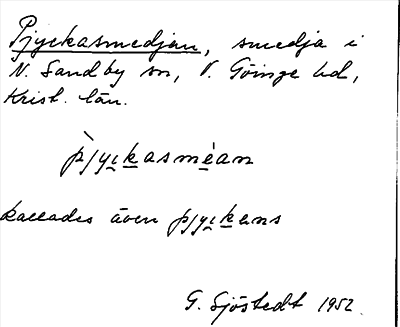 Pjyckasmedjan, smedja i
N. Sandby sn, V. Göinge hd,
Krist. län.
p̀jyc̱ḵasmèa̱n
kallades även pjyc̱ḵens
G. Sjöstedt 1952.